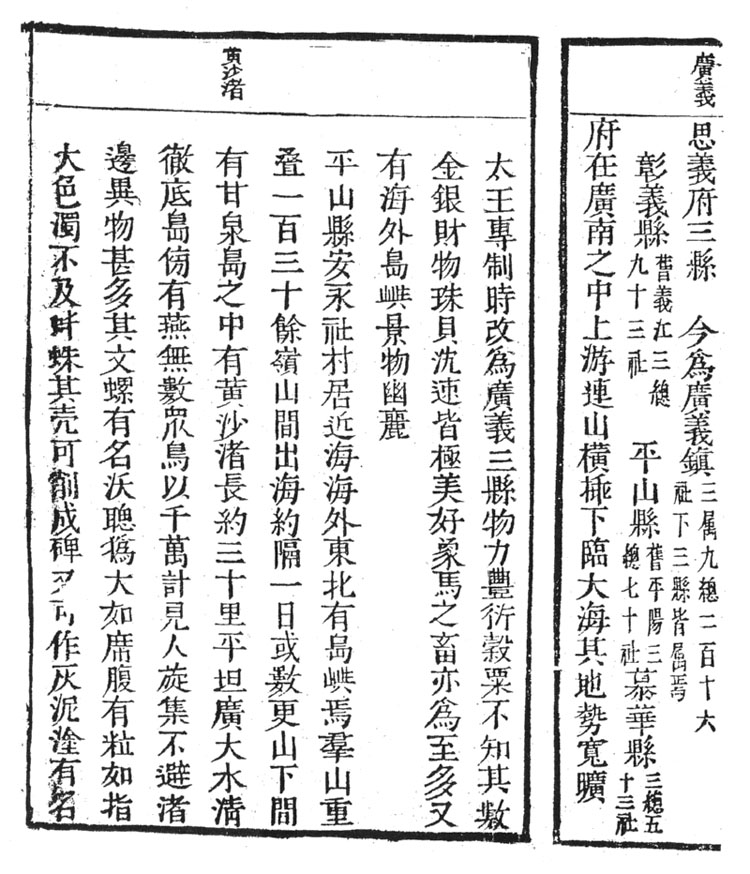 廣義
思義府三縣　今爲廣義鎮三属九總二百十六社下三縣皆属焉
彰義縣舊義江三總九十三社　平山縣舊平陽三總七十社慕華縣三總五十三社
府在廣南之中上游連山橫插下臨大海其地勢寬曠
太王專制時改爲廣義三縣物力豐衍穀粟不知其數
金銀財物珠貝沈速皆極美好象馬之畜亦爲至多又
有海外島㠇景物幽麗
黄沙渚
平山縣安永社村居近海海外東北有島㠇焉羣山重
叠一百三十餘嶺山間出海約隔一日或數更山下間
有甘泉島之中有黄沙渚長約三十里平坦廣大水清
徹底島傍有燕無數眾鳥以千萬計見人旋集不避渚
邊異物甚多其文螺有名沃聰爲大如席腹有粒如指
大色濁不及蚌蛛其壳可削成碑又可作灰泥塗有名